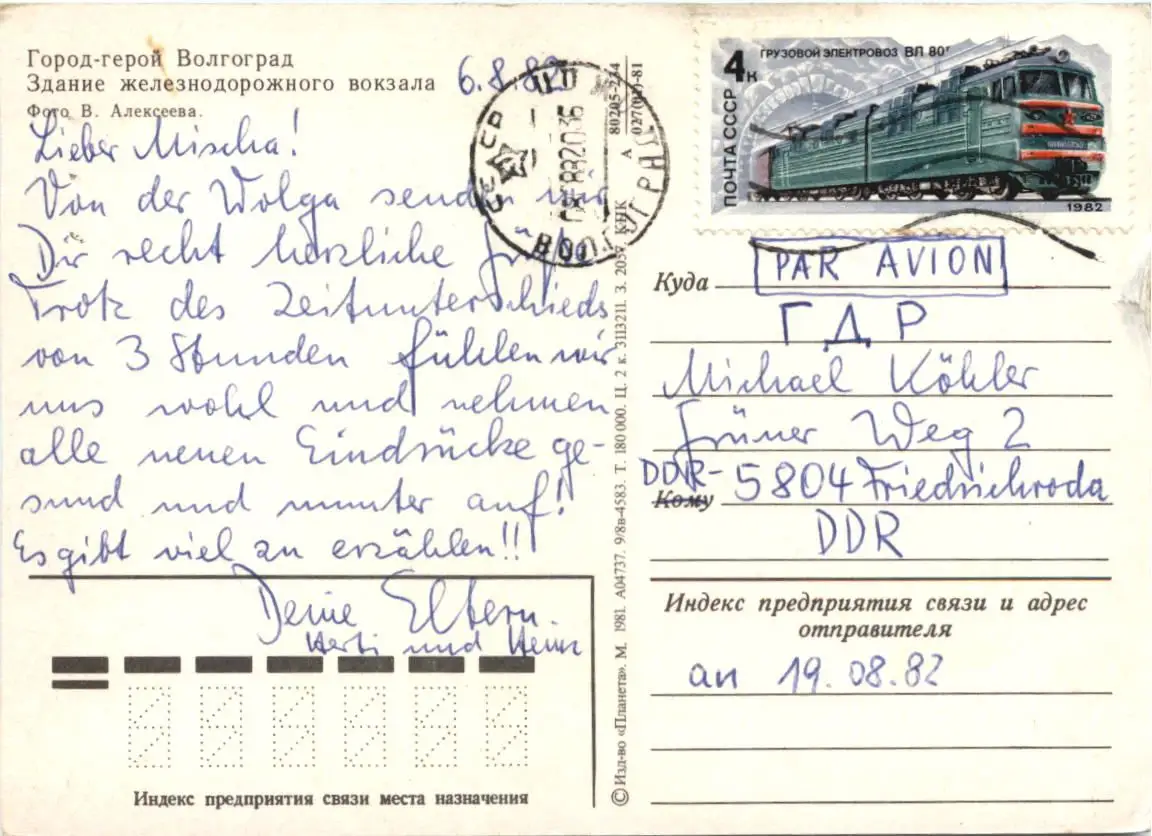 Город-герой Волгоград
Здание железнодорожного вокзала
Фото В. Алексеева.
6.8.82
Lieber Mischa!
Von der Wolga senden wir
Dir recht herzliche Grüße
Trotz des Zeitunterschieds
von 3 Stunden fühlen wir
uns wohl und nehmen
alle neuen Eindrücke ge-
sund und munter auf!
Es gibt viel zu erzählen!!
Deine Eltern.
Herti und Heinz
Индекс предприятия связи места назначения
СССР
ВОЛГОГРАД
© Изд-во «Планета». М. 1981. А04737. 9/8в-4583. Т. 180 000. Ц. 2 к. 3113211. З. 2057. КПК
А
80205-244
027(01)-81
4к
ГРУЗОВОЙ ЭЛЕКТРОВОЗ ВЛ 80
ПОЧТА СССР
1982
PAR AVION
Куда
ГДР
Michael Köhler
Grüner Weg 2
DDR-5804 Friedrichroda
Кому
DDR
Индекс предприятия связи и адрес
отправителя
an 19.08.82